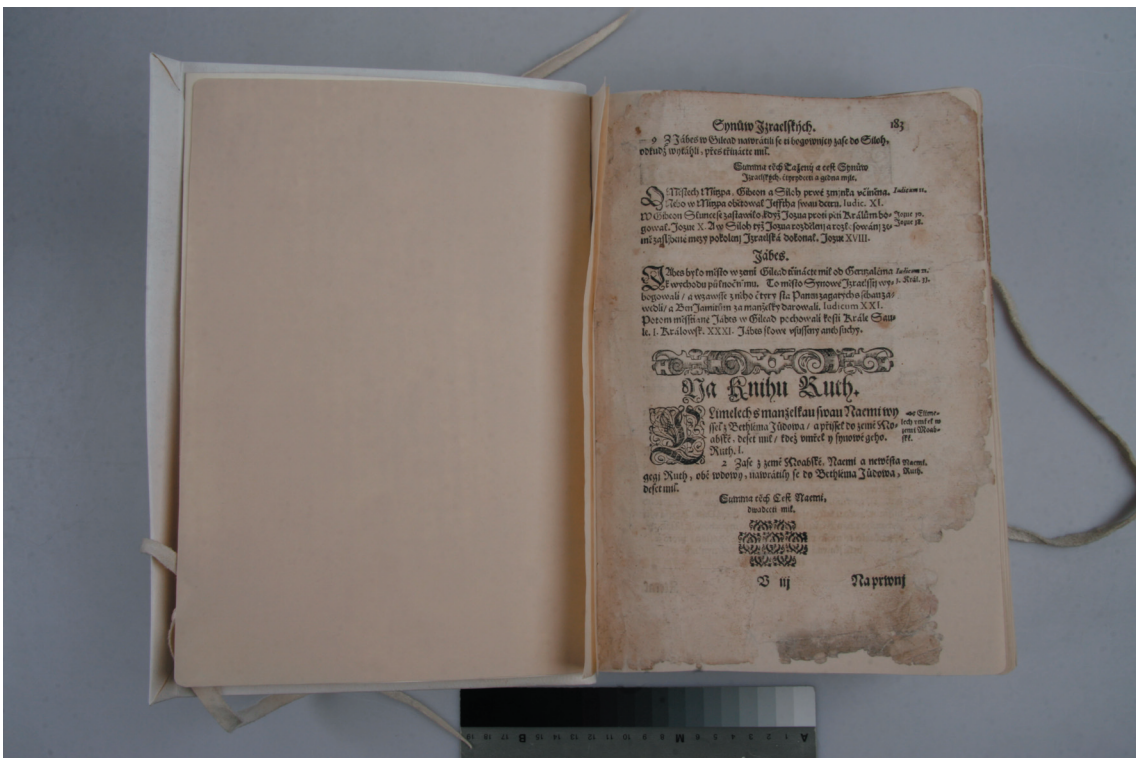 Synůw Izraelských. 183
9 Z Jábes w Gilead nawrátili se ti bogownjcy zase do Siloh,
odkudž wytáhli, přes třinácte mil.
Summa těch Tažený a cest Synůw
Izraelských, čtyrydceti a gedna mjle.
O Městech Mizpa, Gibeon a Siloh prwé zmjnka včiněna. Iudicum 11.
Nebo w Mizpa obětowal Jefftha swau dceru. Iudic. XI.
W Gibeon Slunce se zastawilo, když Jozua proti pěti Králům bo- Jozue 10.
gowal. Jozue X. A w Siloh týž Jozua rozdělenj a rozměřowánj ze- Jozue 18.
mě zaslíbené mezy pokolenj Izraelská dokonal. Jozue XVIII.
Jábes.
JAbes bylo město w zemi Gilead třinácte mil od Geruzaléma Iudicum 21.
k wýchodu půlnočnjmu. To město Synowé Izraelsstj wy- 1. Král. 31.
bogowali / a wzawsse z něho čtyry sta Panen zagatých s sebau za-
wedli / a BenJamitům za manželky darowali. Iudicum XXI.
Potom měsstiané Jábes w Gilead pochowali kosti Krále Sau-
le. I. Králowsk. XXXI. Jábes slowe vsussený aneb suchý.
Na Knihu Ruth.
ELimelech s manželkau swau Naemi wy Elime-
ssel z Bethléma Jůdowa / a přissel do země Mo- lech vmřel w
abské, deset mil / kdež vmřel y synowé geho. zemi Moab-
Ruth. I. ské.
2 Zase z země Moabské, Naemi a newěsta Naemi.
gegj Ruth, obě wdowy, nawrátily se do Bethléma Jůdowa, Ruth.
deset mil.
Summa těch Cest Naemi,
dwadceti mil.
B iij Na prwnj